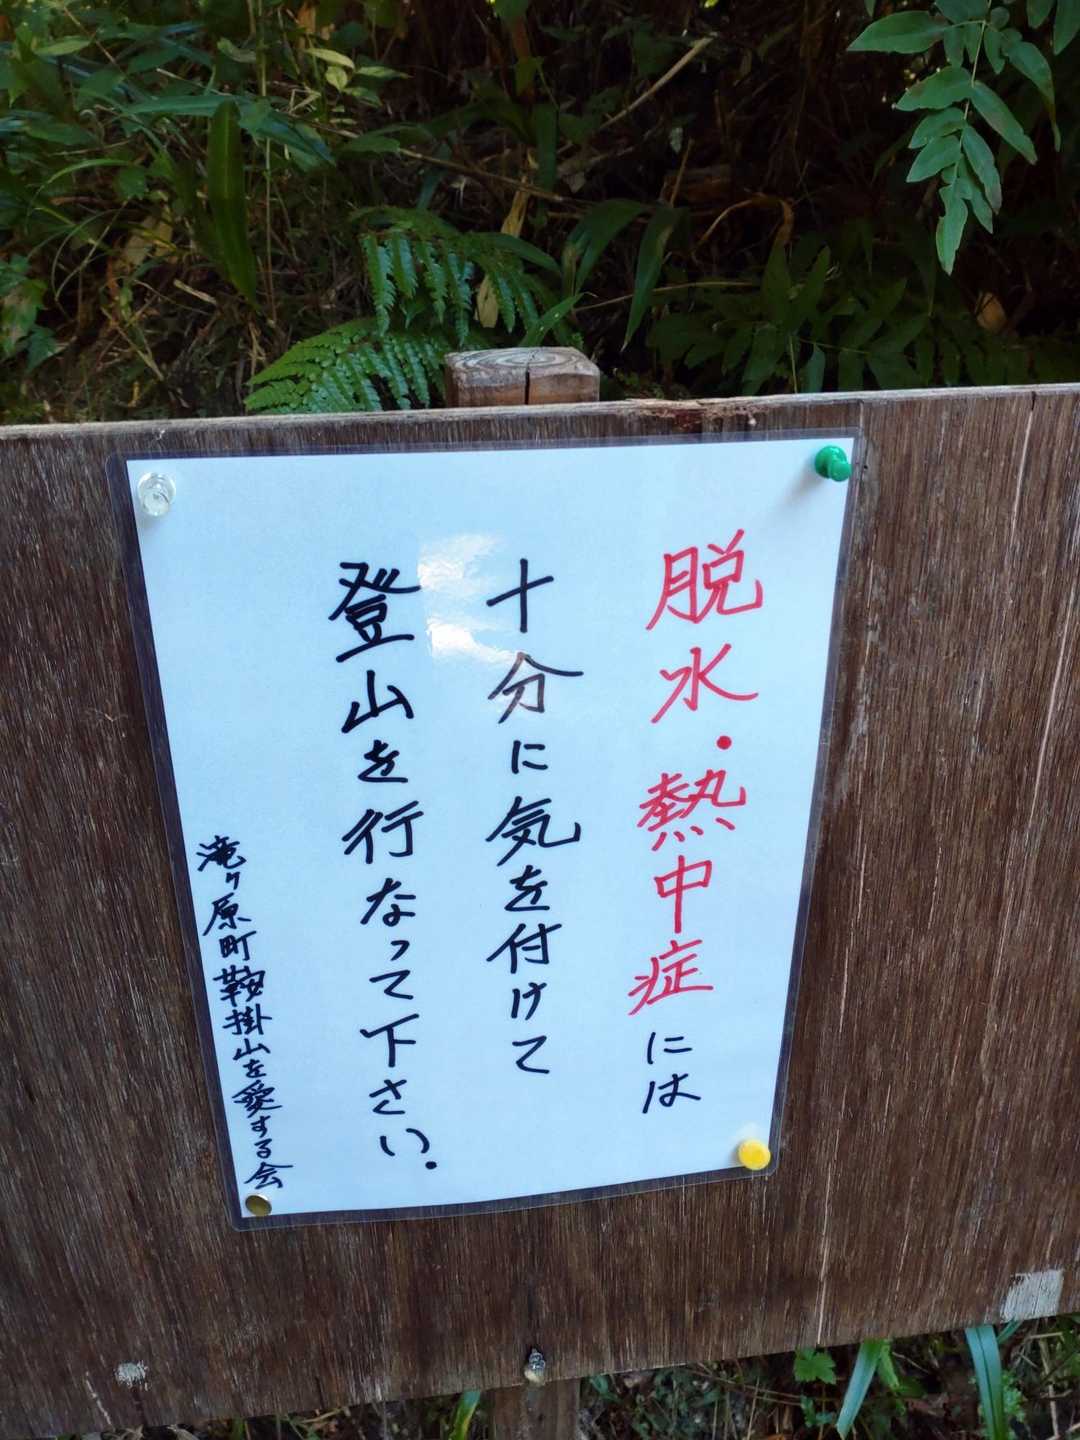 脱水・熱中症には
十分に気を付けて
登山を行なって下さい.
滝ヶ原町鞍掛山を愛する会